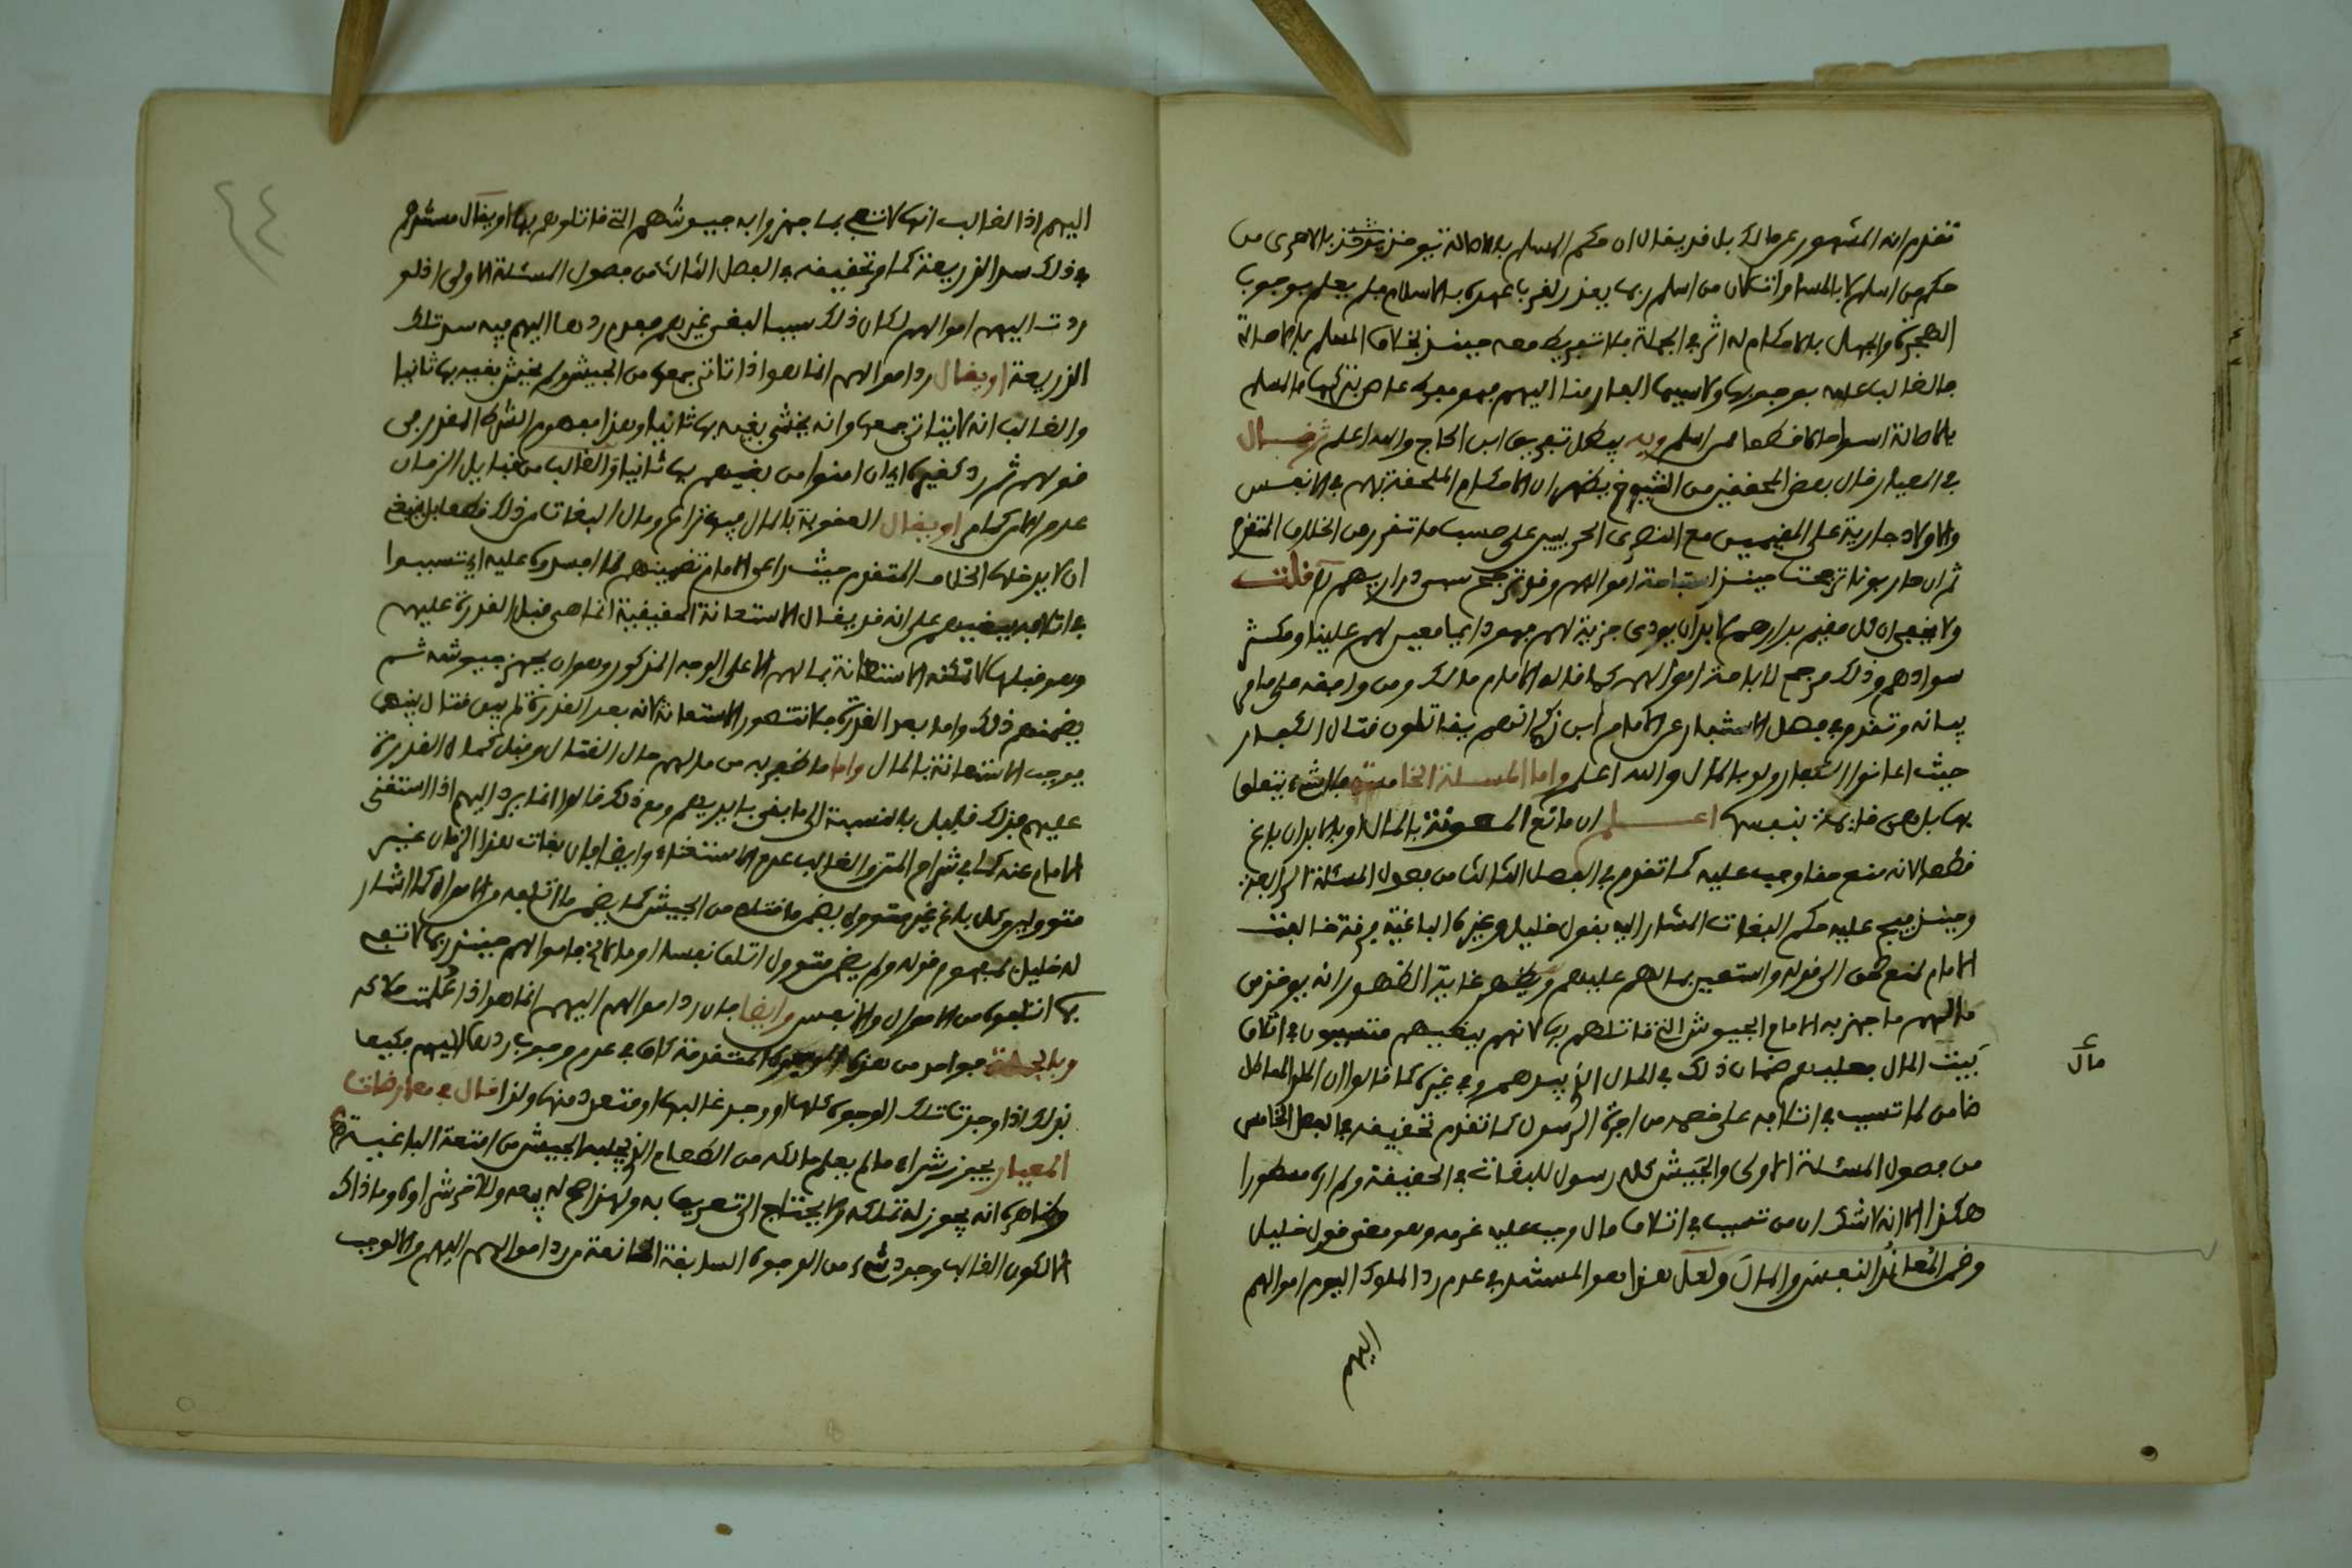 تقدم انه المشهور عن مالك بل قد يقال ان حكم المسلم بالاصالة يؤخذ بالاحرى من
حكم من اسلم لا بالمساواة لان من اسلم ربما يعذر لقرب عهده بالاسلام فلم يعلم بوجوب
الهجرة والجهل بالاحكام له اثر في الجملة فلا تفريط معه حينئذ بخلاف المسلم بالاصالة
فالغالب عليه بوجوبها ولاسيما الفار منا اليهم فهو مفرط عاص بتركها فالمسلم
بالاصالة اسوأ حالا قطعا ممن اسلم وبه يبطل تفريق ابن الحاج والله اعلم ثم قال
في المعيار قال بعض المحققين من الشيوخ يظهر ان الاحكام الملحقة بهم في الانفس
والاولاد جارية على المقيمين مع النصارى الحربيين على حسب ما تقرر من الخلاف المتقدم
ثم ان حاربونا ترجحت حينئذ استباحة اموالهم وقد ترجح سبي ذراريهم قلت
ولا يخفى ان كل مقيم بدارهم لا بد ان يودي جزية لهم فهو دايما معين لهم علينا ومكثر
سوادهم وذلك مرجح لاباحة اموالهم كما قاله الامام مالك ومن وافقه على ما مر
بيانه وتقدم في فصل الاستنفار عن الامام ابن زكري انهم يقاتلون قتال الكفار
حيث اعانوا الكفار ولو بالمال والله اعلم واما المسئلة الخامسة فلا شيء يتعلق
بها بل هي قائمة بنفسها اعلم ان مانع المعونة بالمال او بالابدان باغ
قطعا لانه منع حقا وجب عليه كما تقدم في الفصل الثالث من فصول المسئلة الرابعة
وحينئذ فيجب عليه حكم البغات المشار اليه بقول خليل وغيره الباغية فرقة خالفت
الامام لمنع حق الى قوله واستعين بمالهم عليهم ويظهر غاية الظهور انه يوخذ من
مالهم ما جهز به الامام الجيوش التي قاتلهم بها لانهم ببغيهم متسببون في اتلاف
مال
بيت المال فعليهم ضمان ذلك في المال الذي بيدهم وفي غيره كما قالوا ان الملد المماطل
ضامن لما تسبب في اتلافه على خصمه من اجرة الرسول كما تقدم تحقيقه في الفصل الخامس
من فصول المسئلة الاولى والجيش كله رسول للبغات في الحقيقة ولم اره مسطورا
هكذا الا انه لا شك ان من تسبب في اتلاف مال وجب عليه غرمه وهو معنى قول خليل
وضمن المعاند النفس والمال ولعل هذا هو المستند في عدم رد الملوك اليوم اموالهم
اليهم
٤٤
اليهم اذ الغالب انها لا تفي بما جهزوا به جيوشهم التي قاتلوهم بها او يقال مستندهم
في ذلك سد الذريعة كما مر تحقيقه في الفصل الثالث من فصول المسئلة الاولى اذ لو
ردت اليهم اموالهم لكان ذلك سببا لبغي غيرهم فعدم ردها اليهم فيه سد تلك
الذريعة او يقال رد اموالهم انما هو اذا تاتى جمعها من الجيش ولم يخش بغيه بها ثانيا
والغالب انه لا يتاتى جمعها وانه يخشى بغيه بها ثانيا وهذا مفهوم الشرط المقدر في
قولهم ثم رد كغيره اي ان امنوا من بغيهم بها ثانيا والغالب من قبايل الزمان
عدم الامن كما مر او يقال العقوبة بالمال فيها نزاع ومال البغات من ذلك قطعا بل ينبغي
ان لا يدخله الخلاف المتقدم حيث راى الامام تضمينهم لما افسدوه عليه اي تسببوا
في اتلافه ببغيهم على انه قد يقال الاستعانة الحقيقية انما هي قبل القدرة عليهم
وهو قبلها لا تمكنه الاستعانة بمالهم الا على الوجه المذكور وهو ان يجهز جيوشه ثم
يضمنهم ذلك واما بعد القدرة فلا تتصور الاستعانة لانه بعد القدرة لم يبق قتال بينهم
يوجب الاستعانة بالمال واما ما ظفر به من مالهم حال القتال وقبل كمال القدرة
عليهم فذلك قليل بالنسبة الى ما بقي بايديهم ومع ذلك قالوا انما يرد اليهم اذا استغنى
الامام عنه كما في شراح المتن والغالب عدم الاستغناء وايضا فان بغات هذا الزمان غير
متوولين وكل باغ غير متوول يضمن ما قتله من الجيش كما يضمن ما اتلفه من الاموال كما اشار
له خليل بمفهوم قوله ولم يضمن متوول اتلف نفسا او مالا فاموالهم حينئذ ربما لا تفي
بما اتلفوه من الاموال والانفس وايضا فان رد اموالهم اليهم انما هو اذا علمت ملاكه
وبالجملة فواحد من هذه الوجوه المتقدمة كاف في عدم وجوب ردها اليهم فكيف
بذلك اذا وجدت تلك الوجوه كلها او وجد غالبها او متعدد منها ولذا قال في معاوضات
المعيار يجوز شراء ما لم يعلم مالكه من الطعام الذي يجلبه الجيش من امتعة الباغية
وظاهره انه يجوز له تملكه ولا يحتاج الى التعريف به ولهذا صح له بيعه وللاخر شراوه وما ذاك
الا لكون الغالب وجود شيء من الوجوه السابقة المانعة من رد اموالهم اليهم والا لوجب